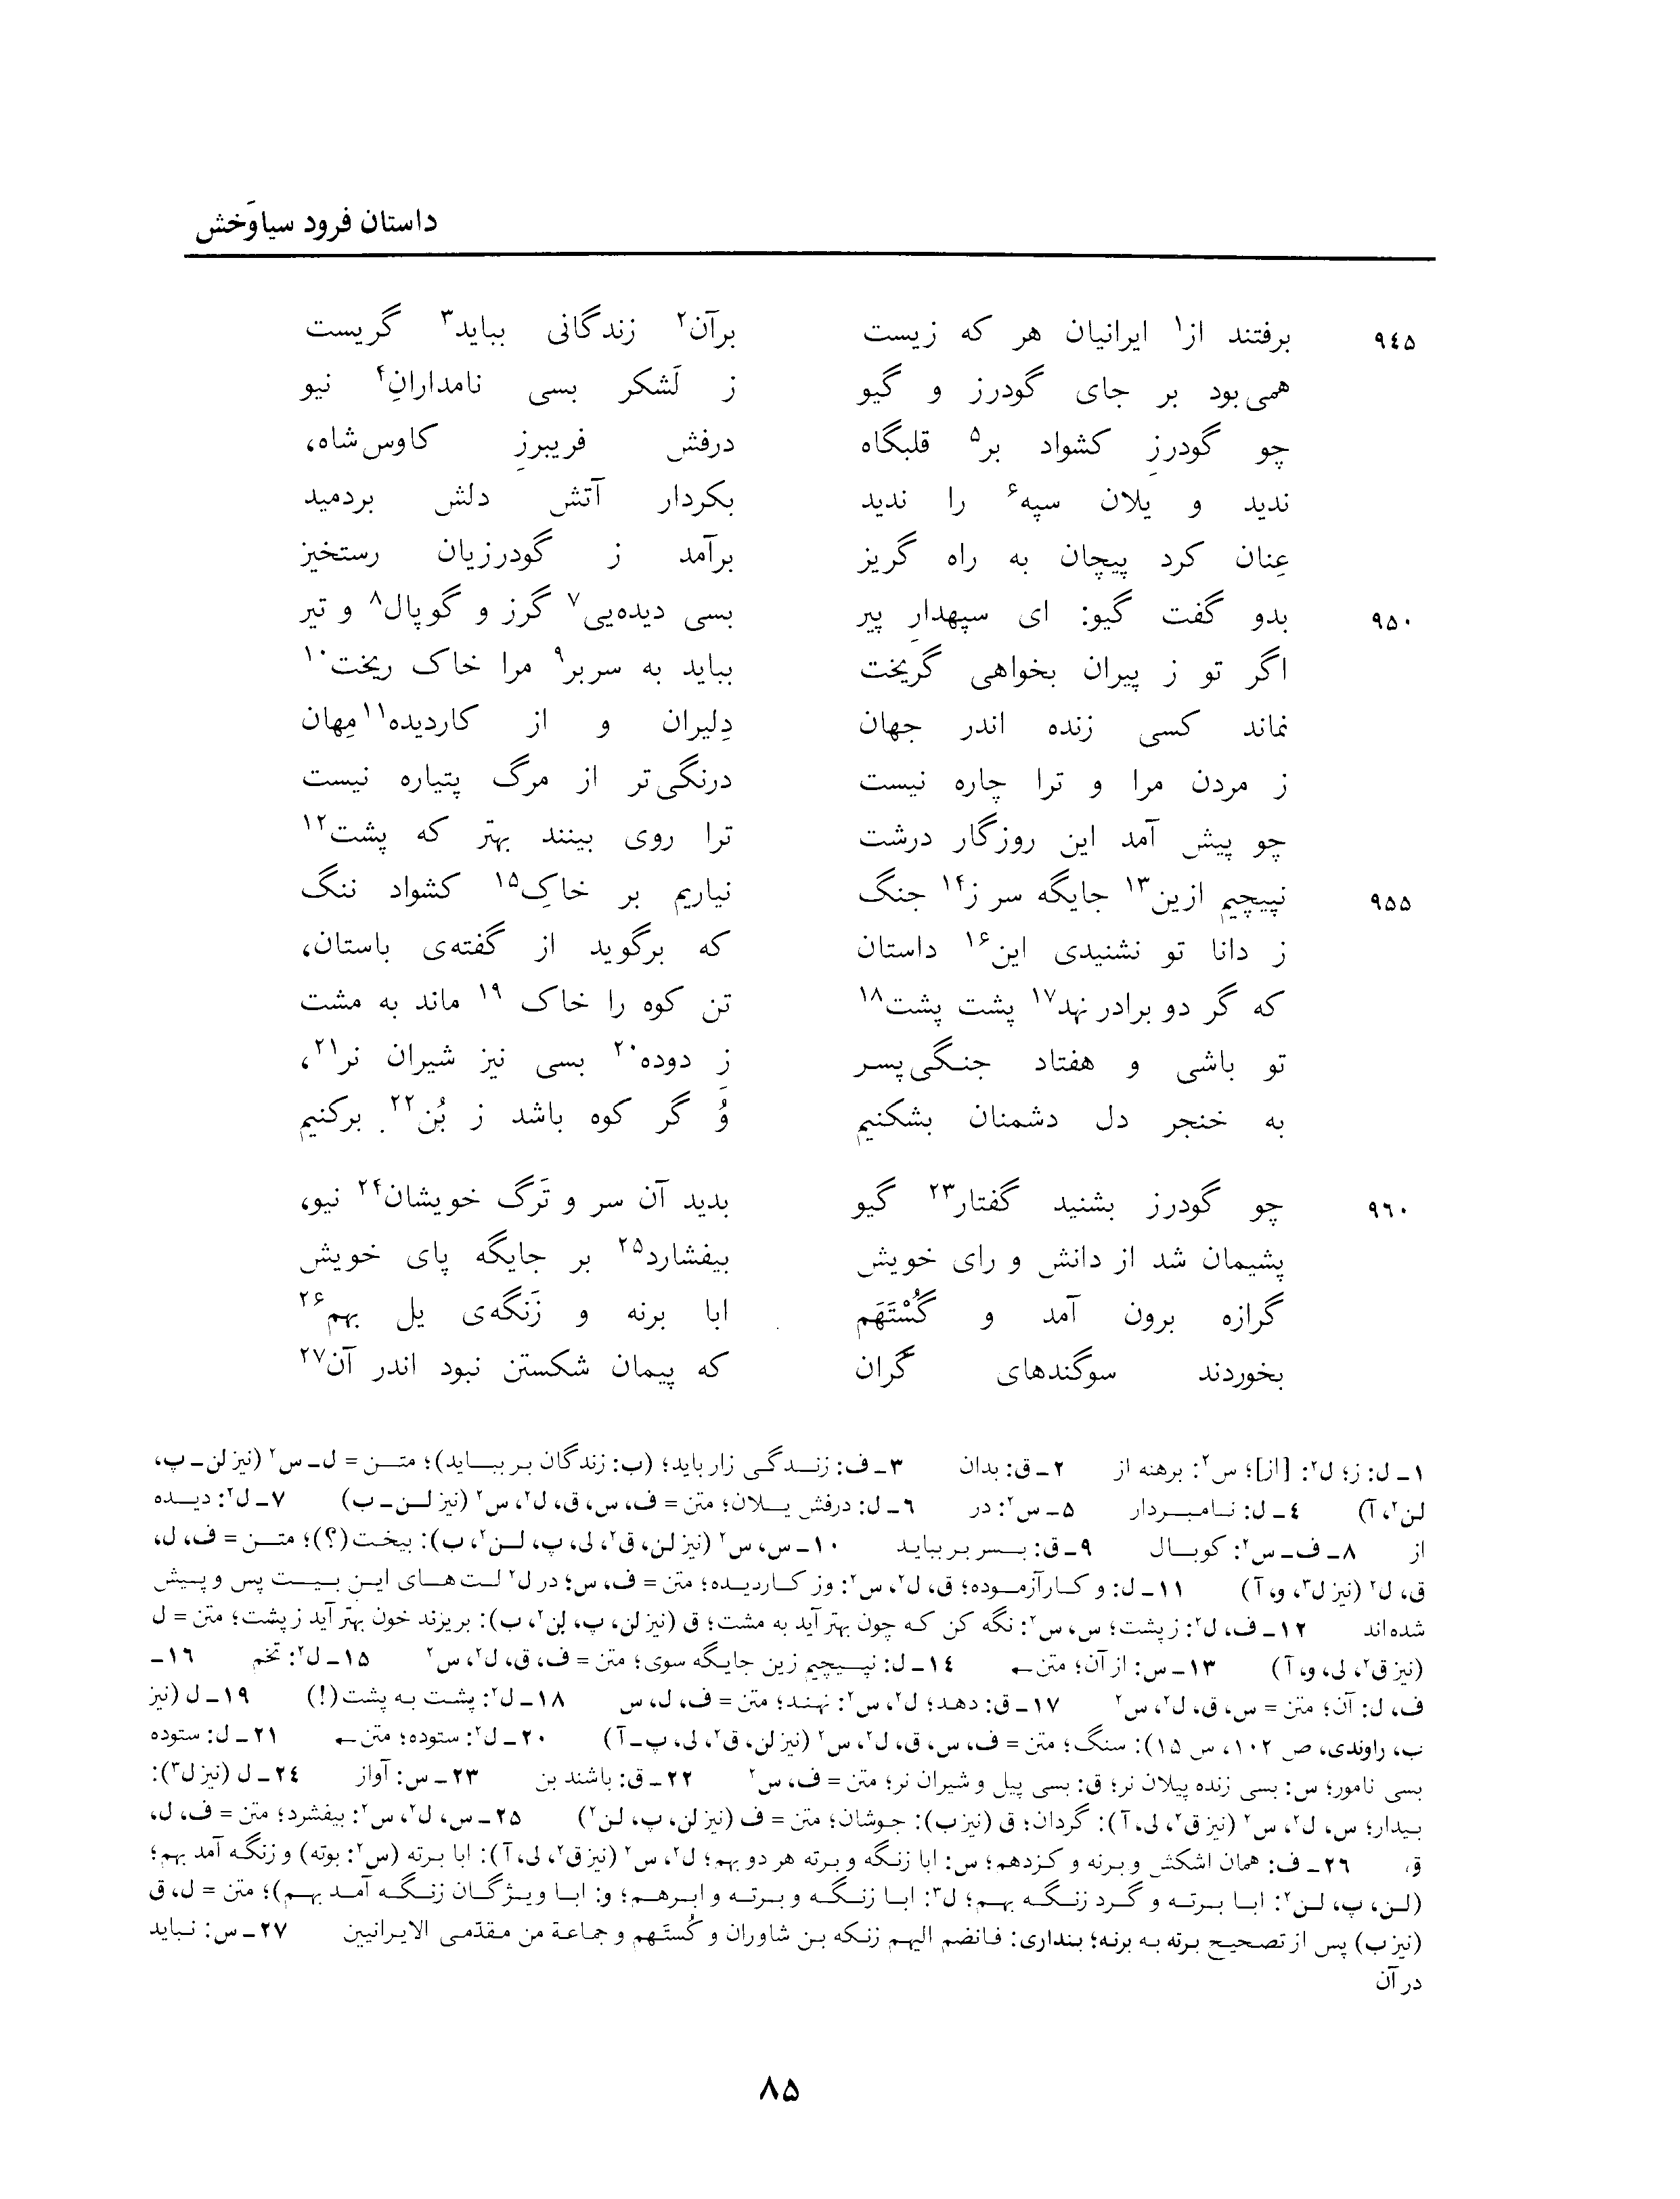 داستان فرود سیاوَخش
۹٤۵ برفتند از۱ ایرانیان هر که زیست برآن۲ زندگانی بباید۳ گریست
همی‌بود بر جای گودرز و گیو ز لَشکر بسی نامدارانِ۴ نیو
چو گودرزِ کشواد بر۵ قلبگاه درفش فریبرزِ کاوس‌شاه،
ندید و یلان سپه۶ را ندید بکردار آتش دلش بردمید
عِنان کرد پیچان به راه گریز برآمد ز گودرزیان رستخیز
۹۵۰ بدو گفت گیو: ای سپهدارِ پیر بسی دیده‌یی۷ گرز و گوپال۸ و تیر
اگر تو ز پیران بخواهی گریخت بباید به سربر۹ مرا خاک ریخت۱۰
نماند کسی زنده اندر جهان دِلیران و از کاردیده۱۱ مِهان
ز مردن مرا و ترا چاره نیست درنگی‌تر از مرگ پتیاره نیست
چو پیش آمد این روزگار درشت ترا روی بینند بهتر که پشت۱۲
۹۵۵ نپیچیم ازین۱۳ جایگه سر ز۱۴ جنگ نیاریم بر خاکِ۱۵ کشواد ننگ
ز دانا تو نشنیدی این۱۶ داستان که برگوید از گفته‌ی باستان،
که گر دو برادر نهد۱۷ پشت پشت۱۸ تن کوه را خاک۱۹ ماند به مشت
تو باشی و هفتاد جنگی‌پسر ز دوده۲۰ بسی نیز شیران نر۲۱،
به خنجر دل دشمنان بشکنیم وَُ گر کوه باشد ز بُن۲۲ برکنیم
۹٦۰ چو گودرز بشنید گفتار۲۳ گیو بدید آن سر و تَرگ خویشان۲۴ نیو،
پشیمان شد از دانش و رای خویش بیفشارد۲۵ بر جایگه پای خویش
گرازه برون آمد و گُسْتَهَم ابا برنه و زَنگه‌ی یل بهم۲۶
بخوردند سوگندهای گران که پیمان شکستن نبود اندر آن۲۷
۱ـ ل: ز؛ ل۲: [از]؛ س۲: برهنه از ۲ـ ق: بدان ۳ـ ف: زندگی زار باید؛ (ب: زندگان بر بباید)؛ متن = ل-س۲ (نیز لن-پ،
لن۲، آ) ٤ـ ل: نامبردار ۵ـ س۲: در ٦ـ ل: درفش یلان؛ متن = ف، س، ق، ل۲، س۲ (نیز لن-ب) ۷ـ ل۲: دیده
از ۸ـ ف-س۲: کوپال ۹ـ ق: بسر بر بباید ۱۰ـ س، س۲ (نیز لن، ق۲، لی، پ، لن۲، ب): بیخت(؟)؛ متن = ف، ل،
ق، ل۲ (نیز ل۳، و، آ) ۱۱ـ ل: و کارآزموده؛ ق، ل۲، س۲: وز کاردیده؛ متن = ف، س؛ در ل۲ لت‌های این بیت پس و پیش
شده‌اند ۱۲ـ ف، ل۲: ز پشت؛ س، س۲: نگه کن که چون بهتر آید به مشت؛ ق (نیز لن، پ، لن۲، ب): بریزند خون بهتر آید ز پشت؛ متن = ل
(نیز ق۲، لی، و، آ) ۱۳ـ س: از آن؛ متن← ۱٤ـ ل: نپیچیم زین جایگه سوی؛ متن = ف، ق، ل۲، س۲ ۱۵ـ ل۲: تخم ۱٦ـ
ف، ل: آن؛ متن = س، ق، ل۲، س۲ ۱۷ـ ق: دهد؛ ل۲، س۲: نهند؛ متن = ف، ل، س ۱۸ـ ل۲: پشت به پشت(!) ۱۹ـ ل (نیز
ب، راوندی، ص ۱۰۲، س ۱۵): سنگ؛ متن = ف، س، ق، ل۲، س۲ (نیز لن، ق۲، لی، پ-آ) ۲۰ـ ل۲: ستوده؛ متن← ۲۱ـ ل: ستوده
بسی نامور؛ س: بسی زنده پیلان نر؛ ق: بسی پیل و شیران نر؛ متن = ف، س۲ ۲۲ـ ق: باشند بن ۲۳ـ س: آواز ۲٤ـ ل (نیز ل۳):
بیدار؛ س، ل۲، س۲ (نیز ق۲، لی، آ): گردان؛ ق (نیز ب): جوشان؛ متن = ف (نیز لن، پ، لن۲) ۲۵ـ س، ل۲، س۲: بیفشرد؛ متن = ف، ل،
ق، ۲٦ـ ف: همان اشکش و برنه و کزدهم؛ س: ابا زنگه و برته هر دو بهم؛ ل۲، س۲ (نیز ق۲، لی، آ): ابا برته (س۲: بوته) و زنگه آمد بهم؛
(لن، پ، لن۲: ابا برته و گرد زنگه بهم؛ ل۳: ابا زنگه و برته و ابرهم؛ و: ابا ویژگان زنگه آمد بهم)؛ متن = ل، ق
(نیز ب) پس از تصحیح برته به برنه؛ بنداری: فانضم الیهم زنکه بن شاوران و کُستَهم و جماعة من مقدّمی الایرانیین ۲۷ـ س: نباید
در آن
۸۵